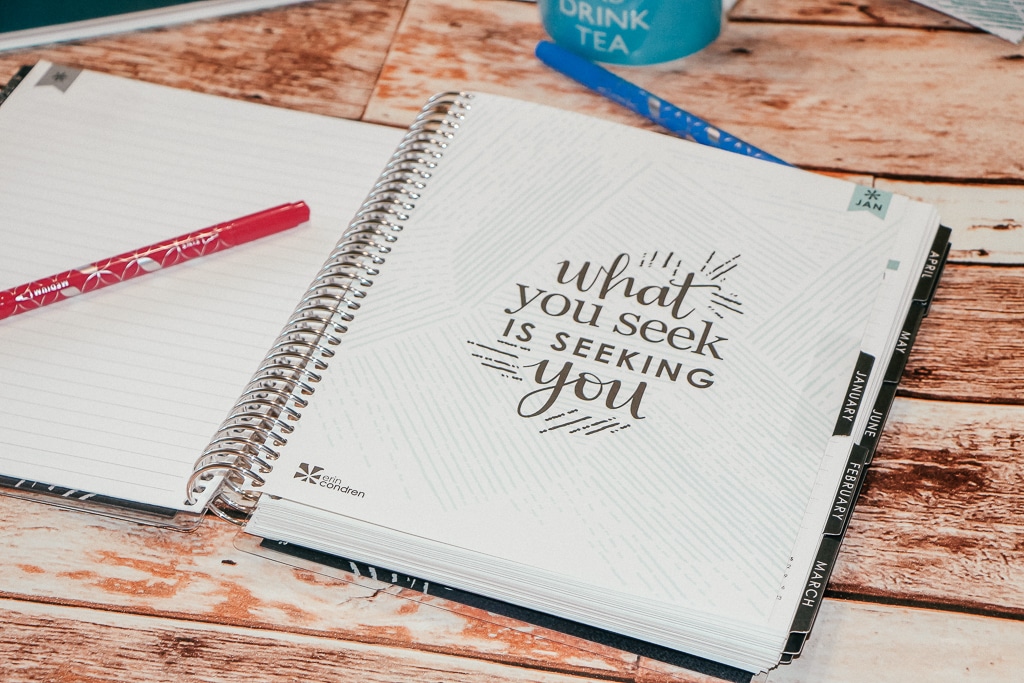 DRINK
TEA
JAN
what
you seek
IS SEEKING
you
erin
condren
APRIL
MAY
JANUARY
JUNE
FEBRUARY
MARCH